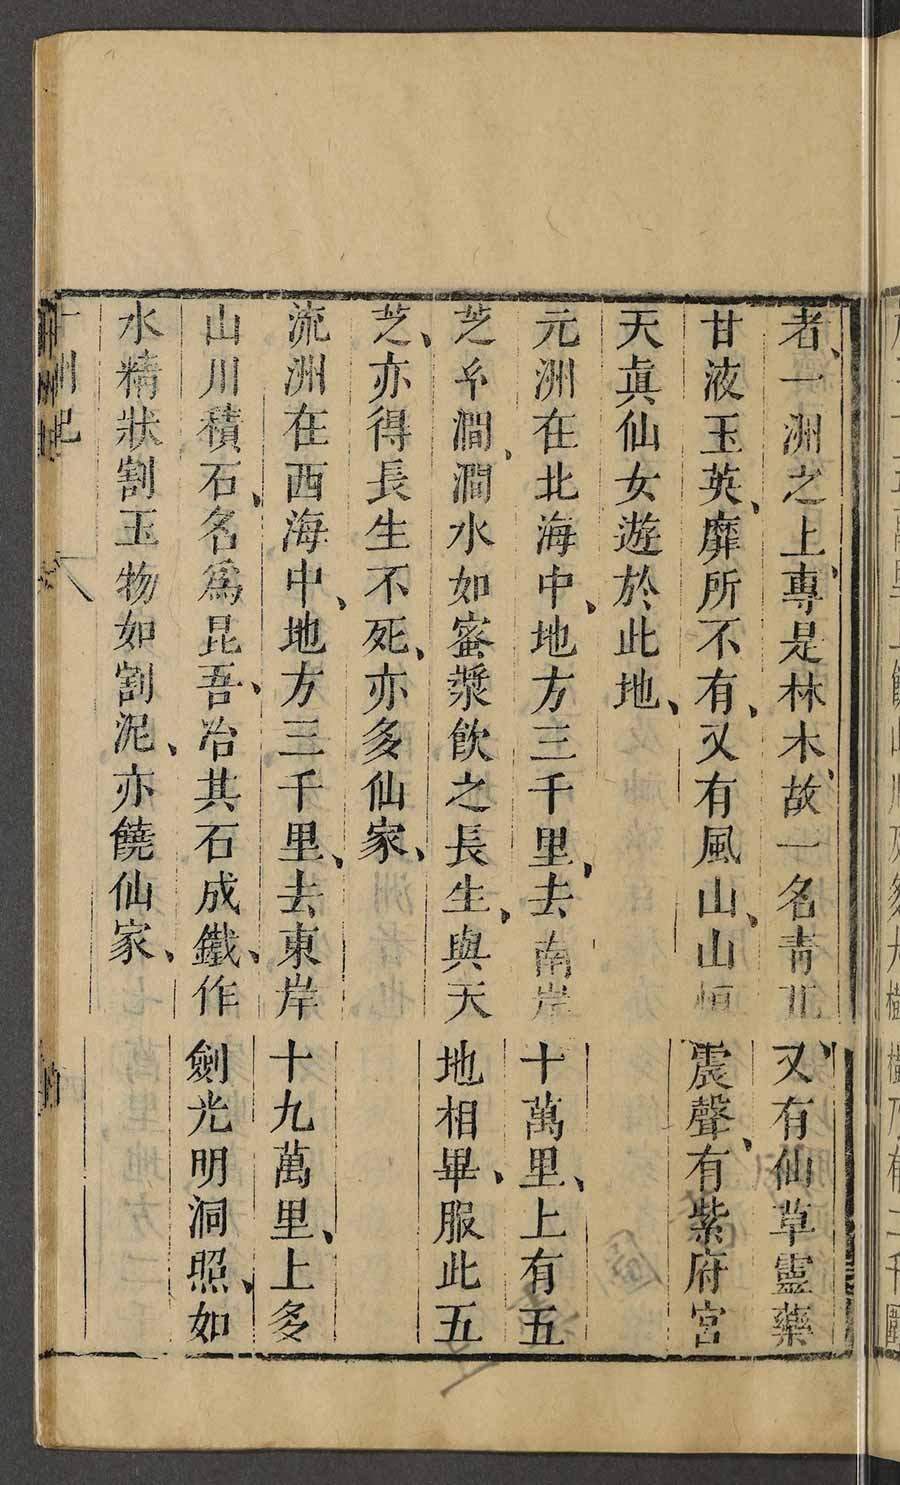 者、一洲之上、專是林木、故一名青丘、又有仙草靈藥
甘液玉英、靡所不有、又有風山、山恒震聲、有紫府宮
天眞仙女遊於此地、
元洲在北海中、地方三千里、去南岸十萬里、上有五
芝𤣥澗、澗水如蜜漿飲之長生、與天地相畢、服此五
芝、亦得長生不死、亦多仙家、
流洲在西海中、地方三千里、去東岸十九萬里、上多
山川積石、名爲昆吾、冶其石成鐵、作劍光明洞照、如
水精狀割玉物如割泥、亦饒仙家、
十洲記
八